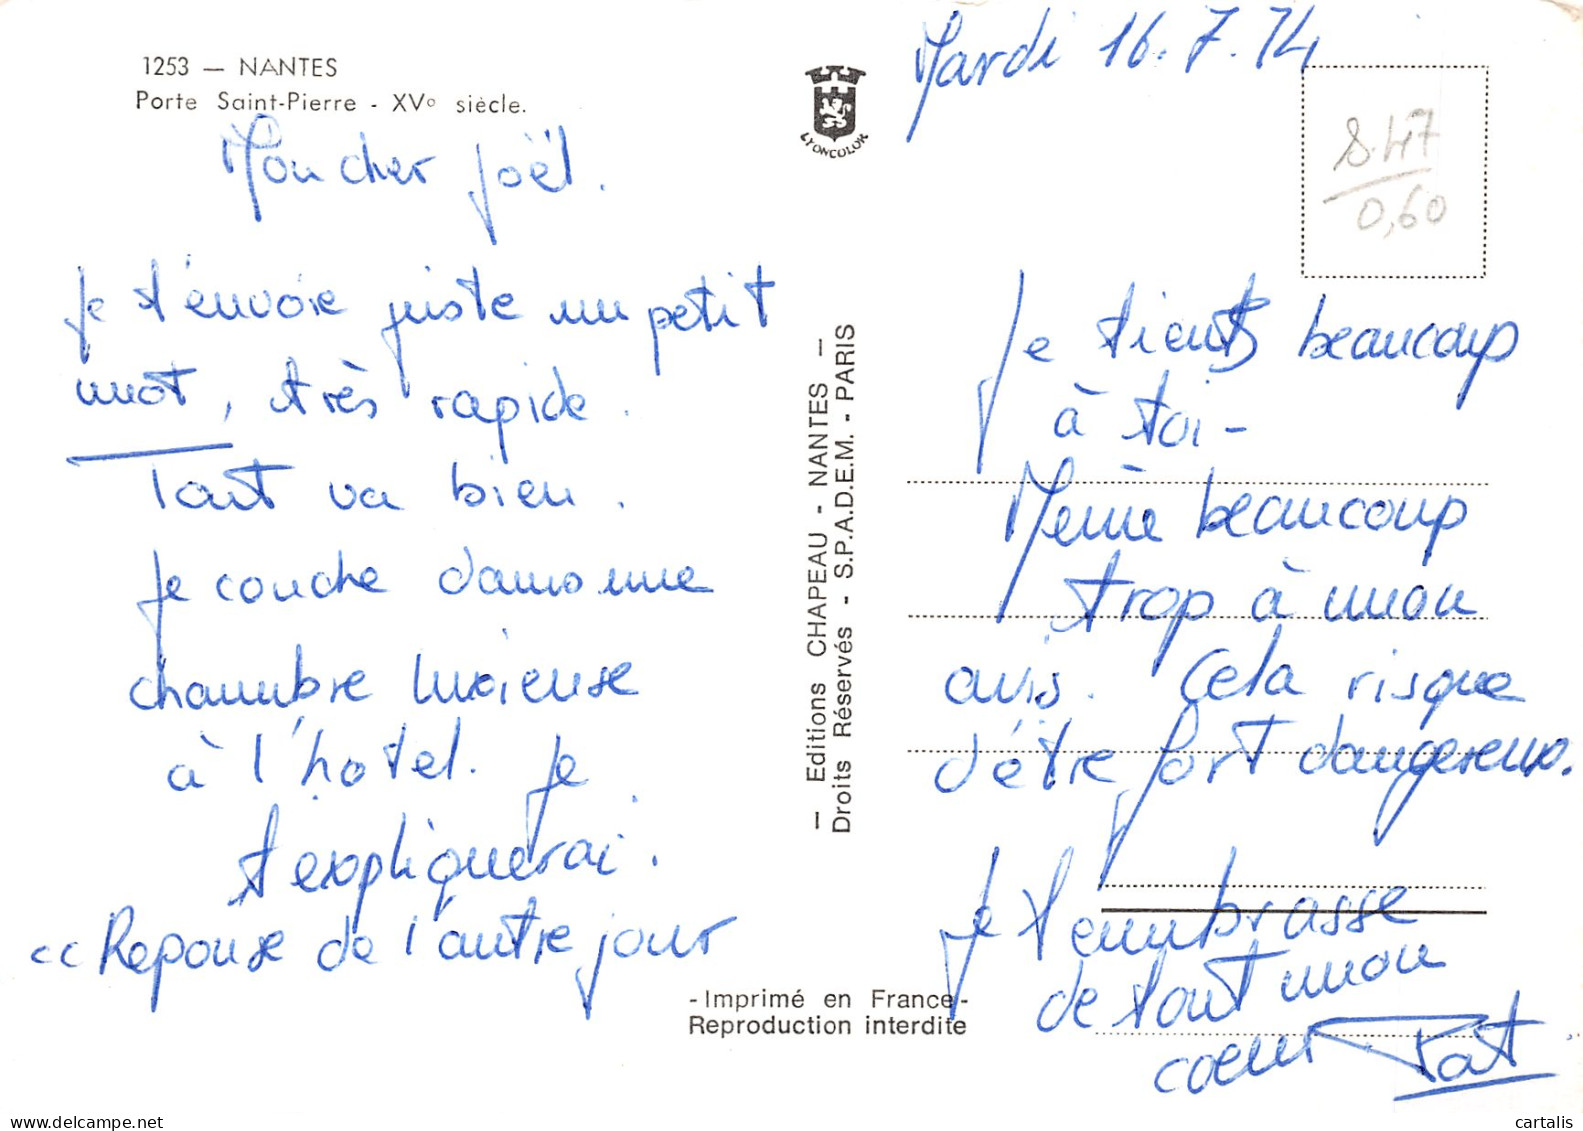 1253 — NANTES
Porte Saint-Pierre - XVe siècle.
LYONCOLOR
Mardi 16.7.74
S.47
0,60
Mon cher Joël.
Je t'envoie juste un petit
mot, très rapide.
Tout va bien.
Je couche dans une
chambre luxieuse
à l'hotel. Je
t'expliquerai.
<< Reponse de l'autre jour
— Editions CHAPEAU - NANTES —
Droits Réservés - S.P.A.D.E.M. - PARIS
- Imprimé en France -
Reproduction interdite
Je tiens beaucoup
à toi -
Même beaucoup
trop à mon
avis. Cela risque
d'être fort dangereux.
Je t'embrasse
de tout mon
coeur Pat
www.cartalis.com
cartalis